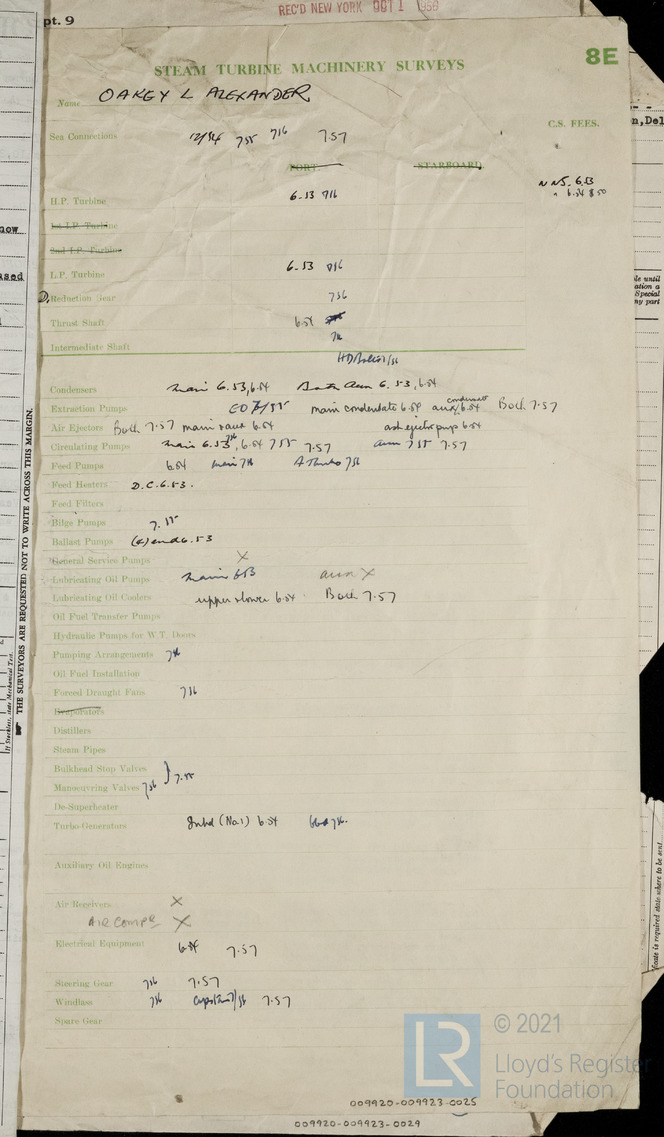 REC'D NEW YORK OCT 1 1956
pt. 9
8E
STEAM TURBINE MACHINERY SURVEYS
Name OAKEY L ALEXANDER
C.S. FEES.
n,Del
Sea Connections 12/54 755 756 7.57
PORT. STARBOARD.
H.P. Turbine 6.53 756
NNS. 6.53
" 6.54 $50
1st I.P. Turbine
2nd I.P. Turbine
L.P. Turbine 6.53 756
Reduction Gear 756
Thrust Shaft 6.54
Intermediate Shaft 756
Condensers main 6.53, 6.54 6.53, 6.54
Extraction Pumps main condensate 6.54 aux condensate 6.54 Both 7.57
Air Ejectors Both 7.57 main & aux 6.54 6.54
Circulating Pumps main 6.53, 756 6.54 755 7.57 aux 755 7.57
Feed Pumps 6.54 main 756 756
Feed Heaters D.C. 6.53.
Feed Filters
Bilge Pumps 7.55
Ballast Pumps 6.53
General Service Pumps X
Lubricating Oil Pumps main 653 aux X
Lubricating Oil Coolers upper & lower 6.54 Both 7.57
Oil Fuel Transfer Pumps
Hydraulic Pumps for W.T. Doors
Pumping Arrangements 756
Oil Fuel Installation
Forced Draught Fans 756
Evaporators
Distillers
Steam Pipes
Bulkhead Stop Valves } 7.55
Manoeuvring Valves 756
De-Superheater
Turbo-Generators Inbd (No.1) 6.54 756.
Auxiliary Oil Engines
Air Receivers X
AIR COMPS X
Electrical Equipment 6.54 7.57
Steering Gear 756 7.57
Windlass 756 capstan 7/56 7.57
Spare Gear
THE SURVEYORS ARE REQUESTED NOT TO WRITE ACROSS THIS MARGIN.
© 2021
LR
Lloyd's Register
Foundation
009920-009923-0025
009920-009923-0029